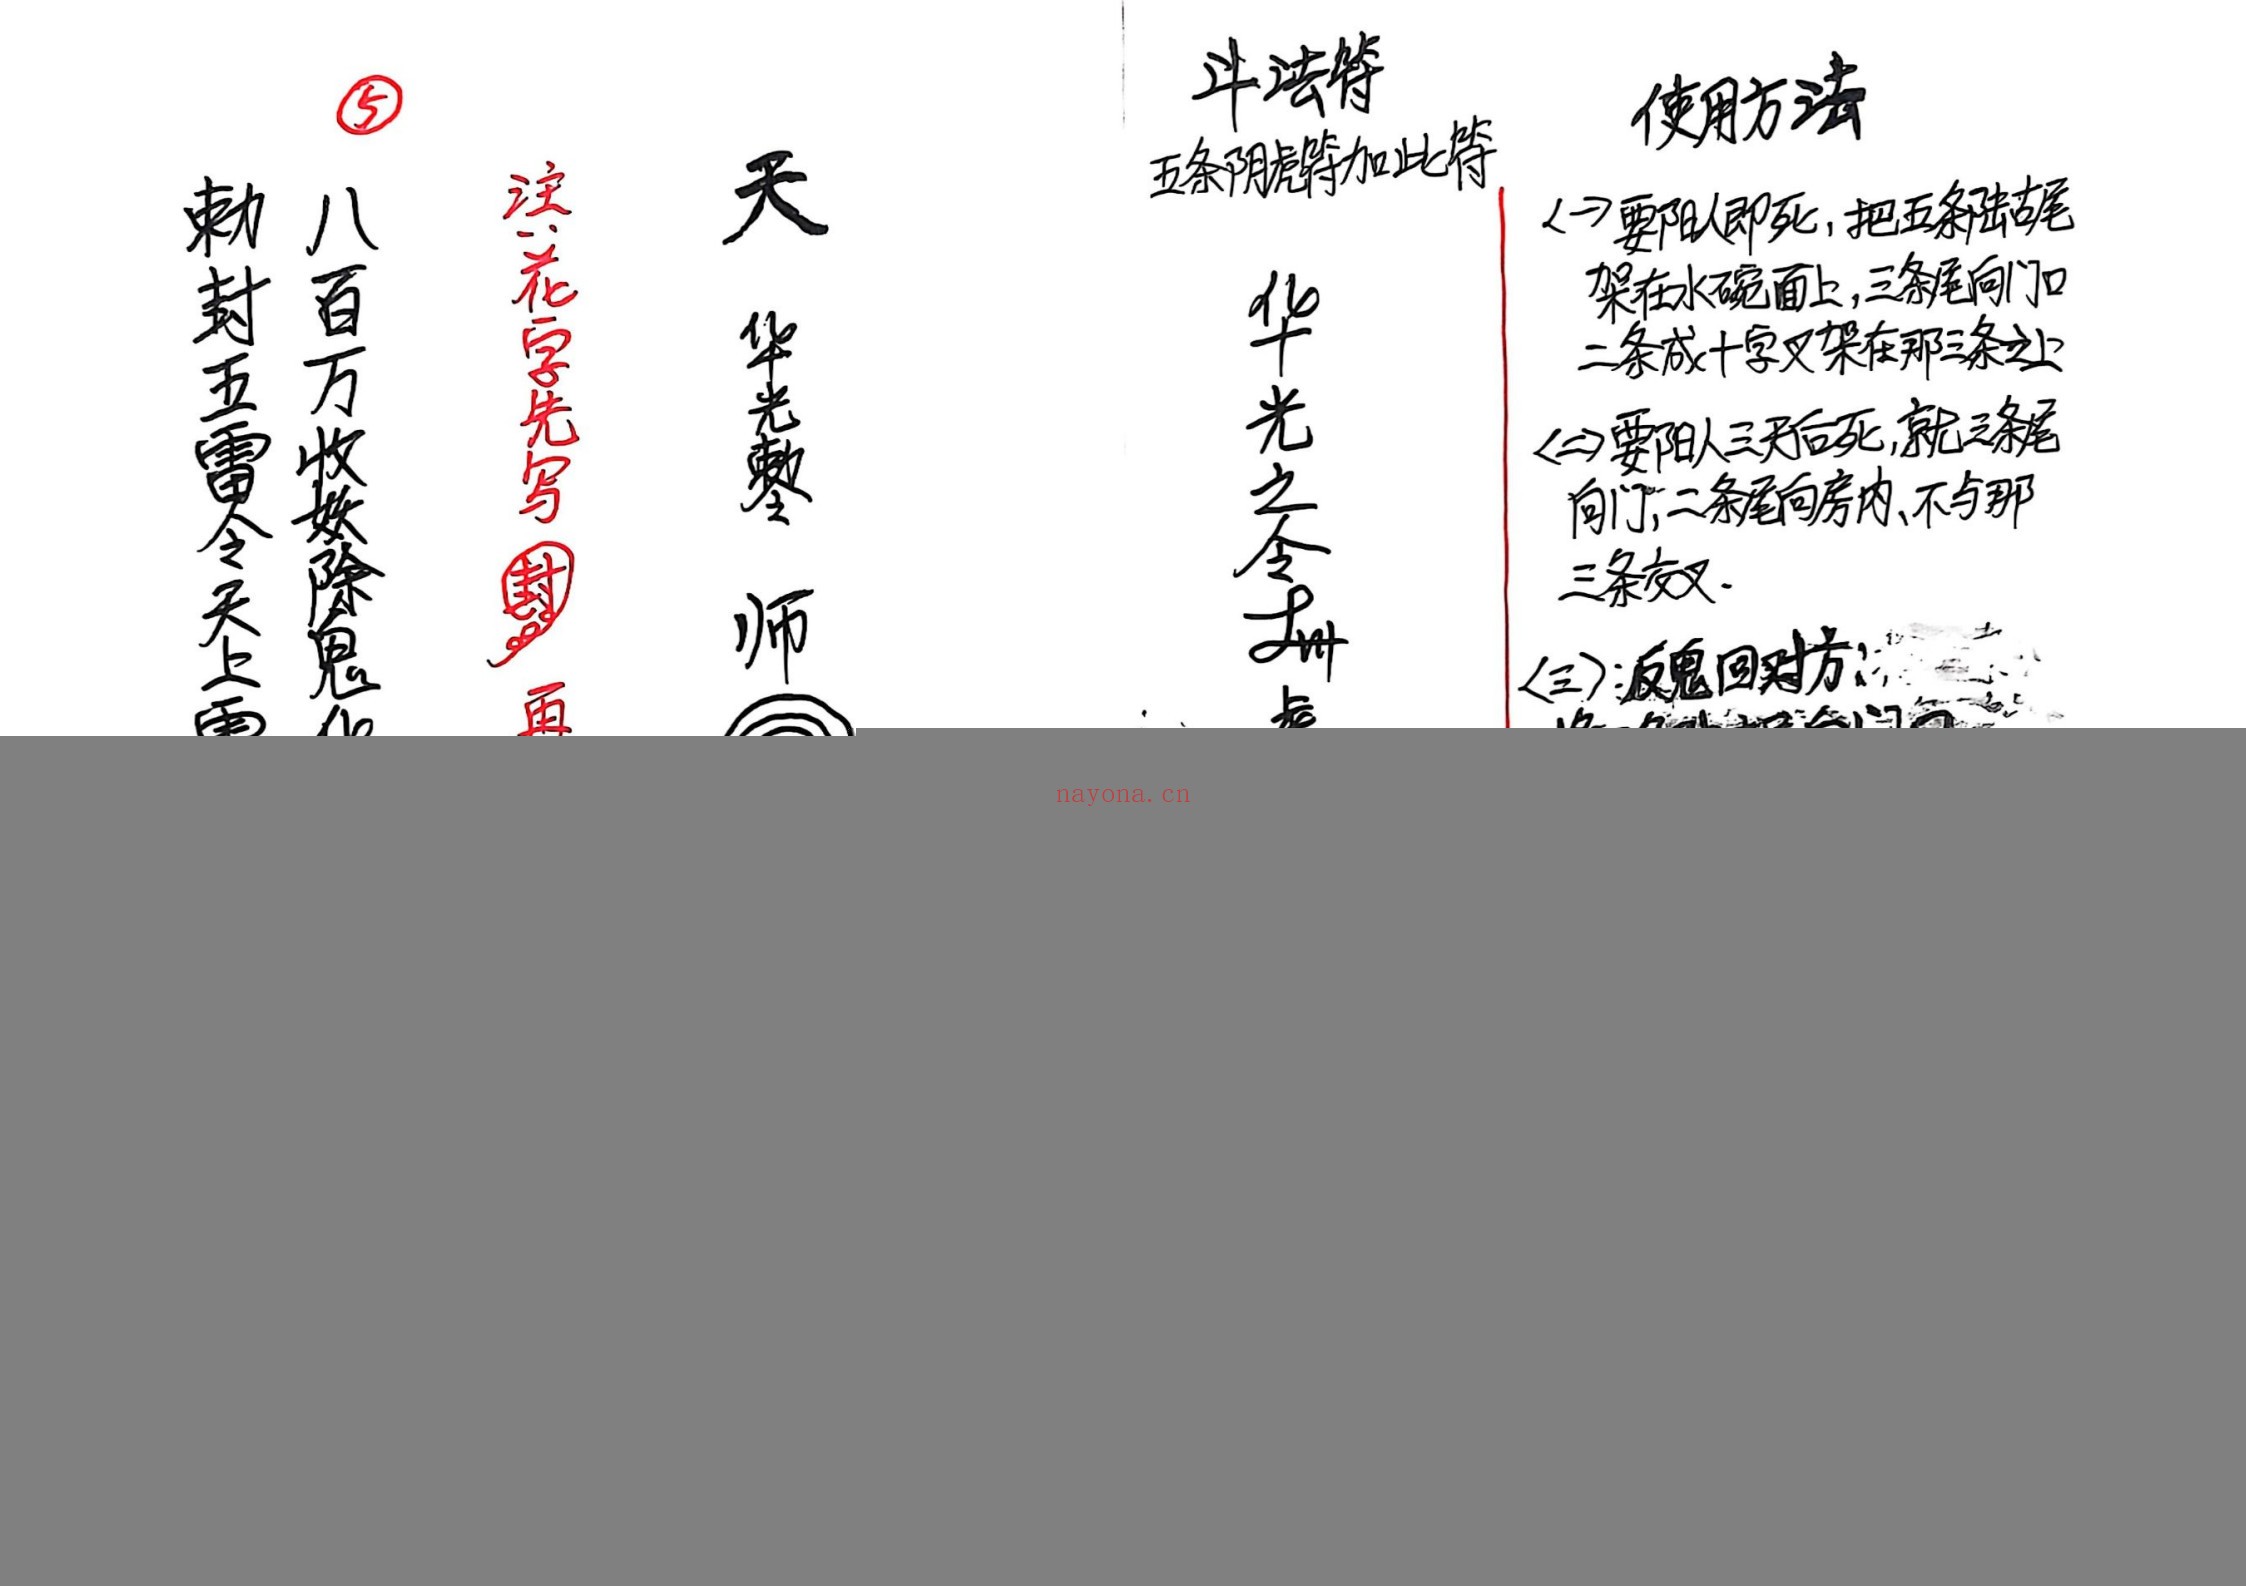 ⑤
勅封五雷令天上雷
八百万收妖除鬼化
注：花字先写 封 再
天 华光勅令 师
斗法符
五条阴虎符加此符
华光之令
使用方法
<一>要阳人即死，把五条陆古尾
架在水碗面上，三条尾向门口
二条成十字叉架在那三条之上
<二>要阳人三天后死，就三条尾
向门，二条尾向房内、不与那
三条交叉.
<三>：反鬼回对方：
nayona.cn